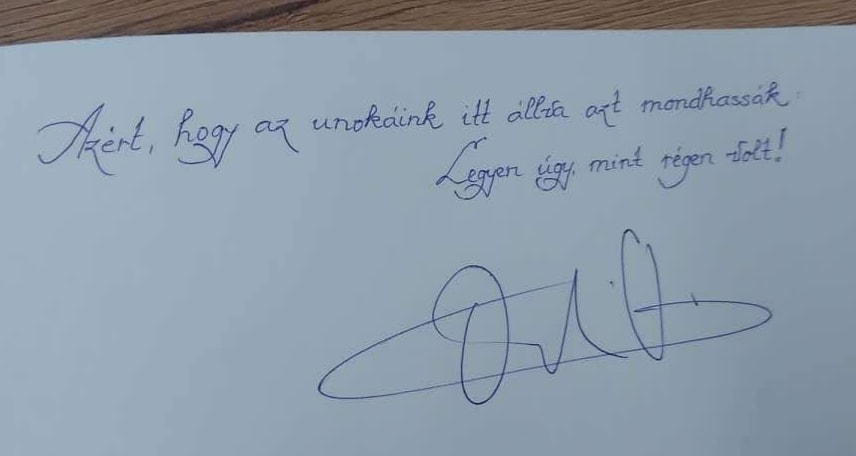 Azért, hogy az unokáink itt állva azt mondhassák:
Legyen úgy, mint régen volt!